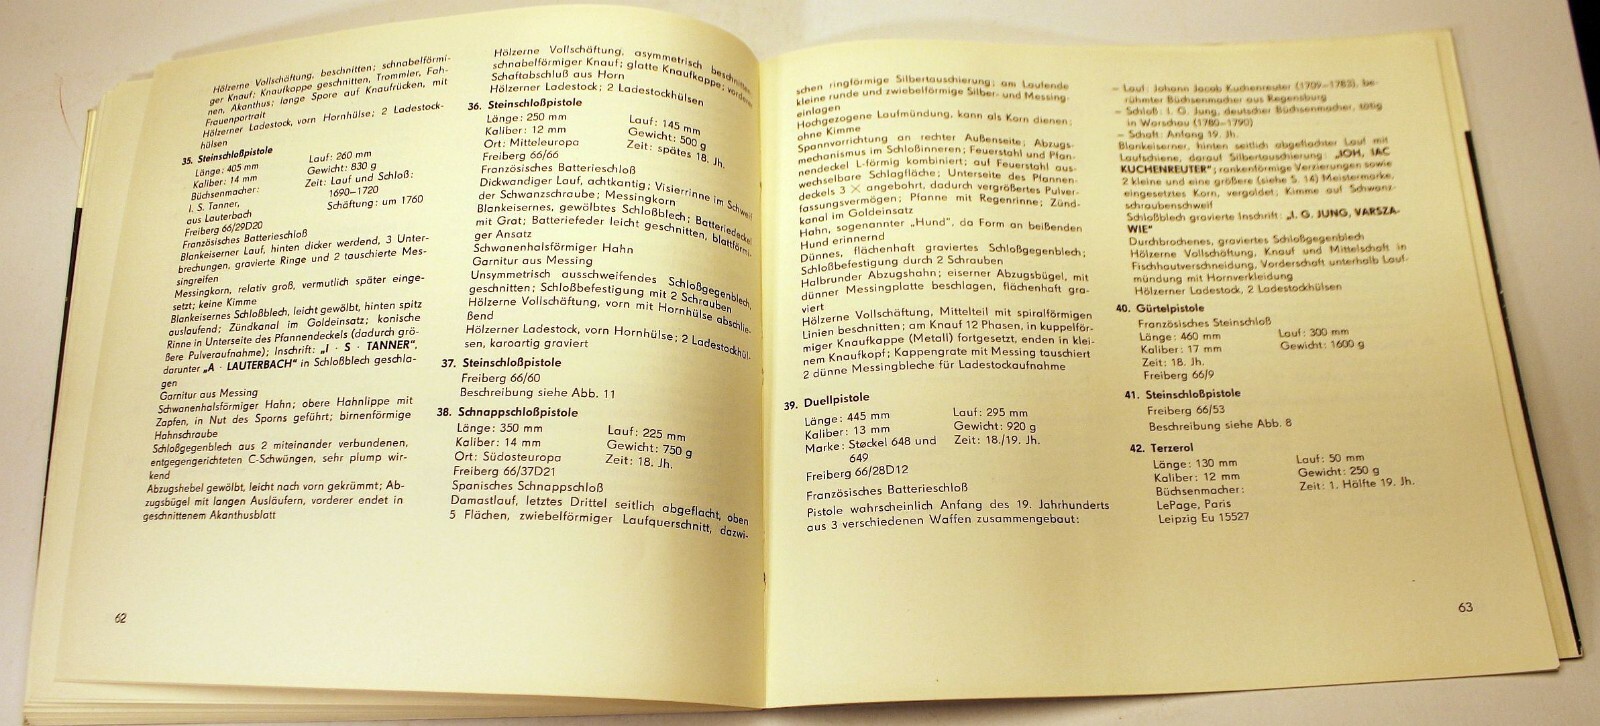 Hölzerne Vollschäftung, beschnitten; schnabelförmi-
ger Knauf; Knaufkappe geschnitten, Trommler, Fah-
nen, Akanthus; lange Spore auf Knaufrücken, mit
Frauenportrait
Hölzerner Ladestock, vorn Hornhülse; 2 Ladestock-
hülsen
35. Steinschloßpistole
Länge: 405 mm Lauf: 260 mm
Kaliber: 14 mm Gewicht: 830 g
Büchsenmacher: Zeit: Lauf und Schloß:
I. S. Tanner, 1690–1720
aus Lauterbach Schäftung: um 1760
Freiberg 66/29D20
Französisches Batterieschloß
Blankeiserner Lauf, hinten dicker werdend, 3 Unter-
brechungen, gravierte Ringe und 2 tauschierte Mes-
singreifen
Messingkorn, relativ groß, vermutlich später einge-
setzt; keine Kimme
Blankeisernes Schloßblech, leicht gewölbt, hinten spitz
auslaufend; Zündkanal im Goldeinsatz; konische
Rinne in Unterseite des Pfannendeckels (dadurch grö-
ßere Pulveraufnahme); Inschrift: „I · S · TANNER",
darunter „A · LAUTERBACH" in Schloßblech geschla-
gen
Garnitur aus Messing
Schwanenhalsförmiger Hahn; obere Hahnlippe mit
Zapfen, in Nut des Sporns geführt; birnenförmige
Hahnschraube
Schloßgegenblech aus 2 miteinander verbundenen,
entgegengerichteten C-Schwüngen, sehr plump wir-
kend
Abzugshebel gewölbt, leicht nach vorn gekrümmt; Ab-
zugsbügel mit langen Ausläufern, vorderer endet in
geschnittenem Akanthusblatt
62
Hölzerne Vollschäftung, asymmetrisch beschnitten,
schnabelförmiger Knauf; glatte Knaufkappe; vorderer
Schaftabschluß aus Horn
Hölzerner Ladestock; 2 Ladestockhülsen
36. Steinschloßpistole
Länge: 250 mm Lauf: 145 mm
Kaliber: 12 mm Gewicht: 500 g
Ort: Mitteleuropa Zeit: spätes 18. Jh.
Freiberg 66/66
Französisches Batterieschloß
Dickwandiger Lauf, achtkantig; Visierrinne im Schweif
der Schwanzschraube; Messingkorn
Blankeisernes, gewölbtes Schloßblech; Batteriedeckel
mit Grat; Batteriefeder leicht geschnitten, blattförmi-
ger Ansatz
Schwanenhalsförmiger Hahn
Garnitur aus Messing
Unsymmetrisch ausschweifendes Schloßgegenblech,
geschnitten; Schloßbefestigung mit 2 Schrauben
Hölzerne Vollschäftung, vorn mit Hornhülse abschlie-
ßend
Hölzerner Ladestock, vorn Hornhülse; 2 Ladestockhül-
sen, karoartig graviert
37. Steinschloßpistole
Freiberg 66/60
Beschreibung siehe Abb. 11
38. Schnappschloßpistole
Länge: 350 mm Lauf: 225 mm
Kaliber: 14 mm Gewicht: 750 g
Ort: Südosteuropa Zeit: 18. Jh.
Freiberg 66/37D21
Spanisches Schnappschloß
Damastlauf, letztes Drittel seitlich abgeflacht, oben
5 Flächen, zwiebelförmiger Laufquerschnitt, dazwi-
schen ringförmige Silbertauschierung; am Laufende
kleine runde und zwiebelförmige Silber- und Messing-
einlagen
Hochgezogene Laufmündung, kann als Korn dienen;
ohne Kimme
Spannvorrichtung an rechter Außenseite; Abzugs-
mechanismus im Schloßinneren; Feuerstahl und Pfan-
nendeckel L-förmig kombiniert; auf Feuerstahl aus-
wechselbare Schlagfläche; Unterseite des Pfannen-
deckels 3 × angebohrt, dadurch vergrößertes Pulver-
fassungsvermögen; Pfanne mit Regenrinne; Zünd-
kanal im Goldeinsatz
Hahn, sogenannter „Hund", da Form an beißenden
Hund erinnernd
Dünnes, flächenhaft graviertes Schloßgegenblech;
Schloßbefestigung durch 2 Schrauben
Halbrunder Abzugshahn; eiserner Abzugsbügel, mit
dünner Messingplatte beschlagen, flächenhaft gra-
viert
Hölzerne Vollschäftung, Mittelteil mit spiralförmigen
Linien beschnitten; am Knauf 12 Phasen, in kuppelför-
miger Knaufkappe (Metall) fortgesetzt, enden in klei-
nem Knaufkopf; Kappengrate mit Messing tauschiert
2 dünne Messingbleche für Ladestockaufnahme
39. Duellpistole
Länge: 445 mm Lauf: 295 mm
Kaliber: 13 mm Gewicht: 920 g
Marke: Støckel 648 und Zeit: 18./19. Jh.
649
Freiberg 66/28D12
Französisches Batterieschloß
Pistole wahrscheinlich Anfang des 19. Jahrhunderts
aus 3 verschiedenen Waffen zusammengebaut:
– Lauf: Johann Jacob Kuchenreuter (1709–1783), be-
rühmter Büchsenmacher aus Regensburg
– Schloß: I. G. Jung, deutscher Büchsenmacher, tätig
in Warschau (1780–1790)
– Schaft: Anfang 19. Jh.
Blankeiserner, hinten seitlich abgeflachter Lauf mit
Laufschiene, darauf Silbertauschierung: „JOH, IAC
KUCHENREUTER"; rankenförmige Verzierungen sowie
2 kleine und eine größere (siehe S. 14) Meistermarke,
eingesetztes Korn, vergoldet; Kimme auf Schwanz-
schraubenschweif
Schloßblech gravierte Inschrift: „I. G. JUNG, VARSZA-
WIE"
Durchbrochenes, graviertes Schloßgegenblech
Hölzerne Vollschäftung, Knauf und Mittelschaft in
Fischhautverschneidung, Vorderschaft unterhalb Lauf-
mündung mit Hornverkleidung
Hölzerner Ladestock, 2 Ladestockhülsen
40. Gürtelpistole
Französisches Steinschloß
Länge: 460 mm Lauf: 300 mm
Kaliber: 17 mm Gewicht: 1600 g
Zeit: 18. Jh.
Freiberg 66/9
41. Steinschloßpistole
Freiberg 66/53
Beschreibung siehe Abb. 8
42. Terzerol
Länge: 130 mm Lauf: 50 mm
Kaliber: 12 mm Gewicht: 250 g
Büchsenmacher: Zeit: 1. Hälfte 19. Jh.
LePage, Paris
Leipzig Eu 15527
63